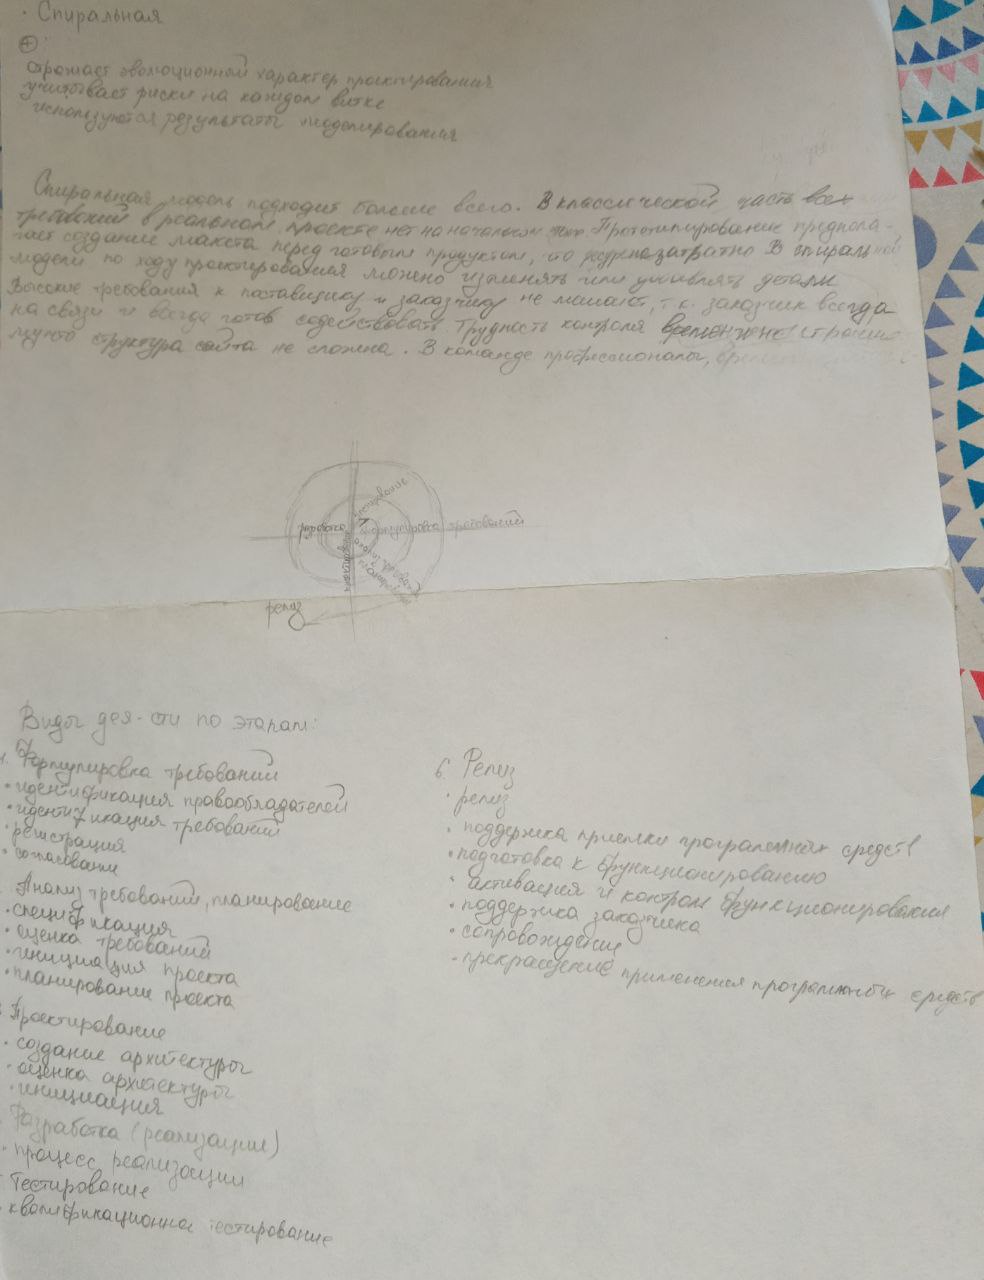 · Спиральная
+:
отражает эволюционный характер проектирования
учитывает риски на каждом витке
используются результаты моделирования
Спиральная модель подходит больше всего. В классической часть всех
требований в реальном проекте нет на начальном Прототипирование предпола-
гает создание макета перед готовым продуктом, что ресурсозатратно В спиральной
модели по ходу проектирования можно изменять или добавлять детали
Высокие требования к поставщику и заказчику не мешают, т.к. заказчик всегда
на связи и всегда готов содействовать Трудность контроля времени не
структура сайта не сложна. В команде профессионалы,
тестирование
разработка
формулировка требований
анализ требований
планирование
проектирование
релиз
Виды дея-сти по этапам:
1. Формулировка требований
· идентификация правообладателей
· идентификация требований
· регистрация
· согласование
Анализ требований, планирование
· спецификация
· оценка требований
· инициация проекта
· планирование проекта
3. Проектирование
· создание архитектуры
· оценка архитектуры
· инициация
Разработка (реализации)
· процесс реализации
Тестирование
· квалификационное тестирование
6. Релиз
· релиз
· поддержка приемки программных средств
· подготовка к функционированию
· активация и контроль функционирования
· поддержка заказчика
· сопровождение
· прекращение применения программных средств